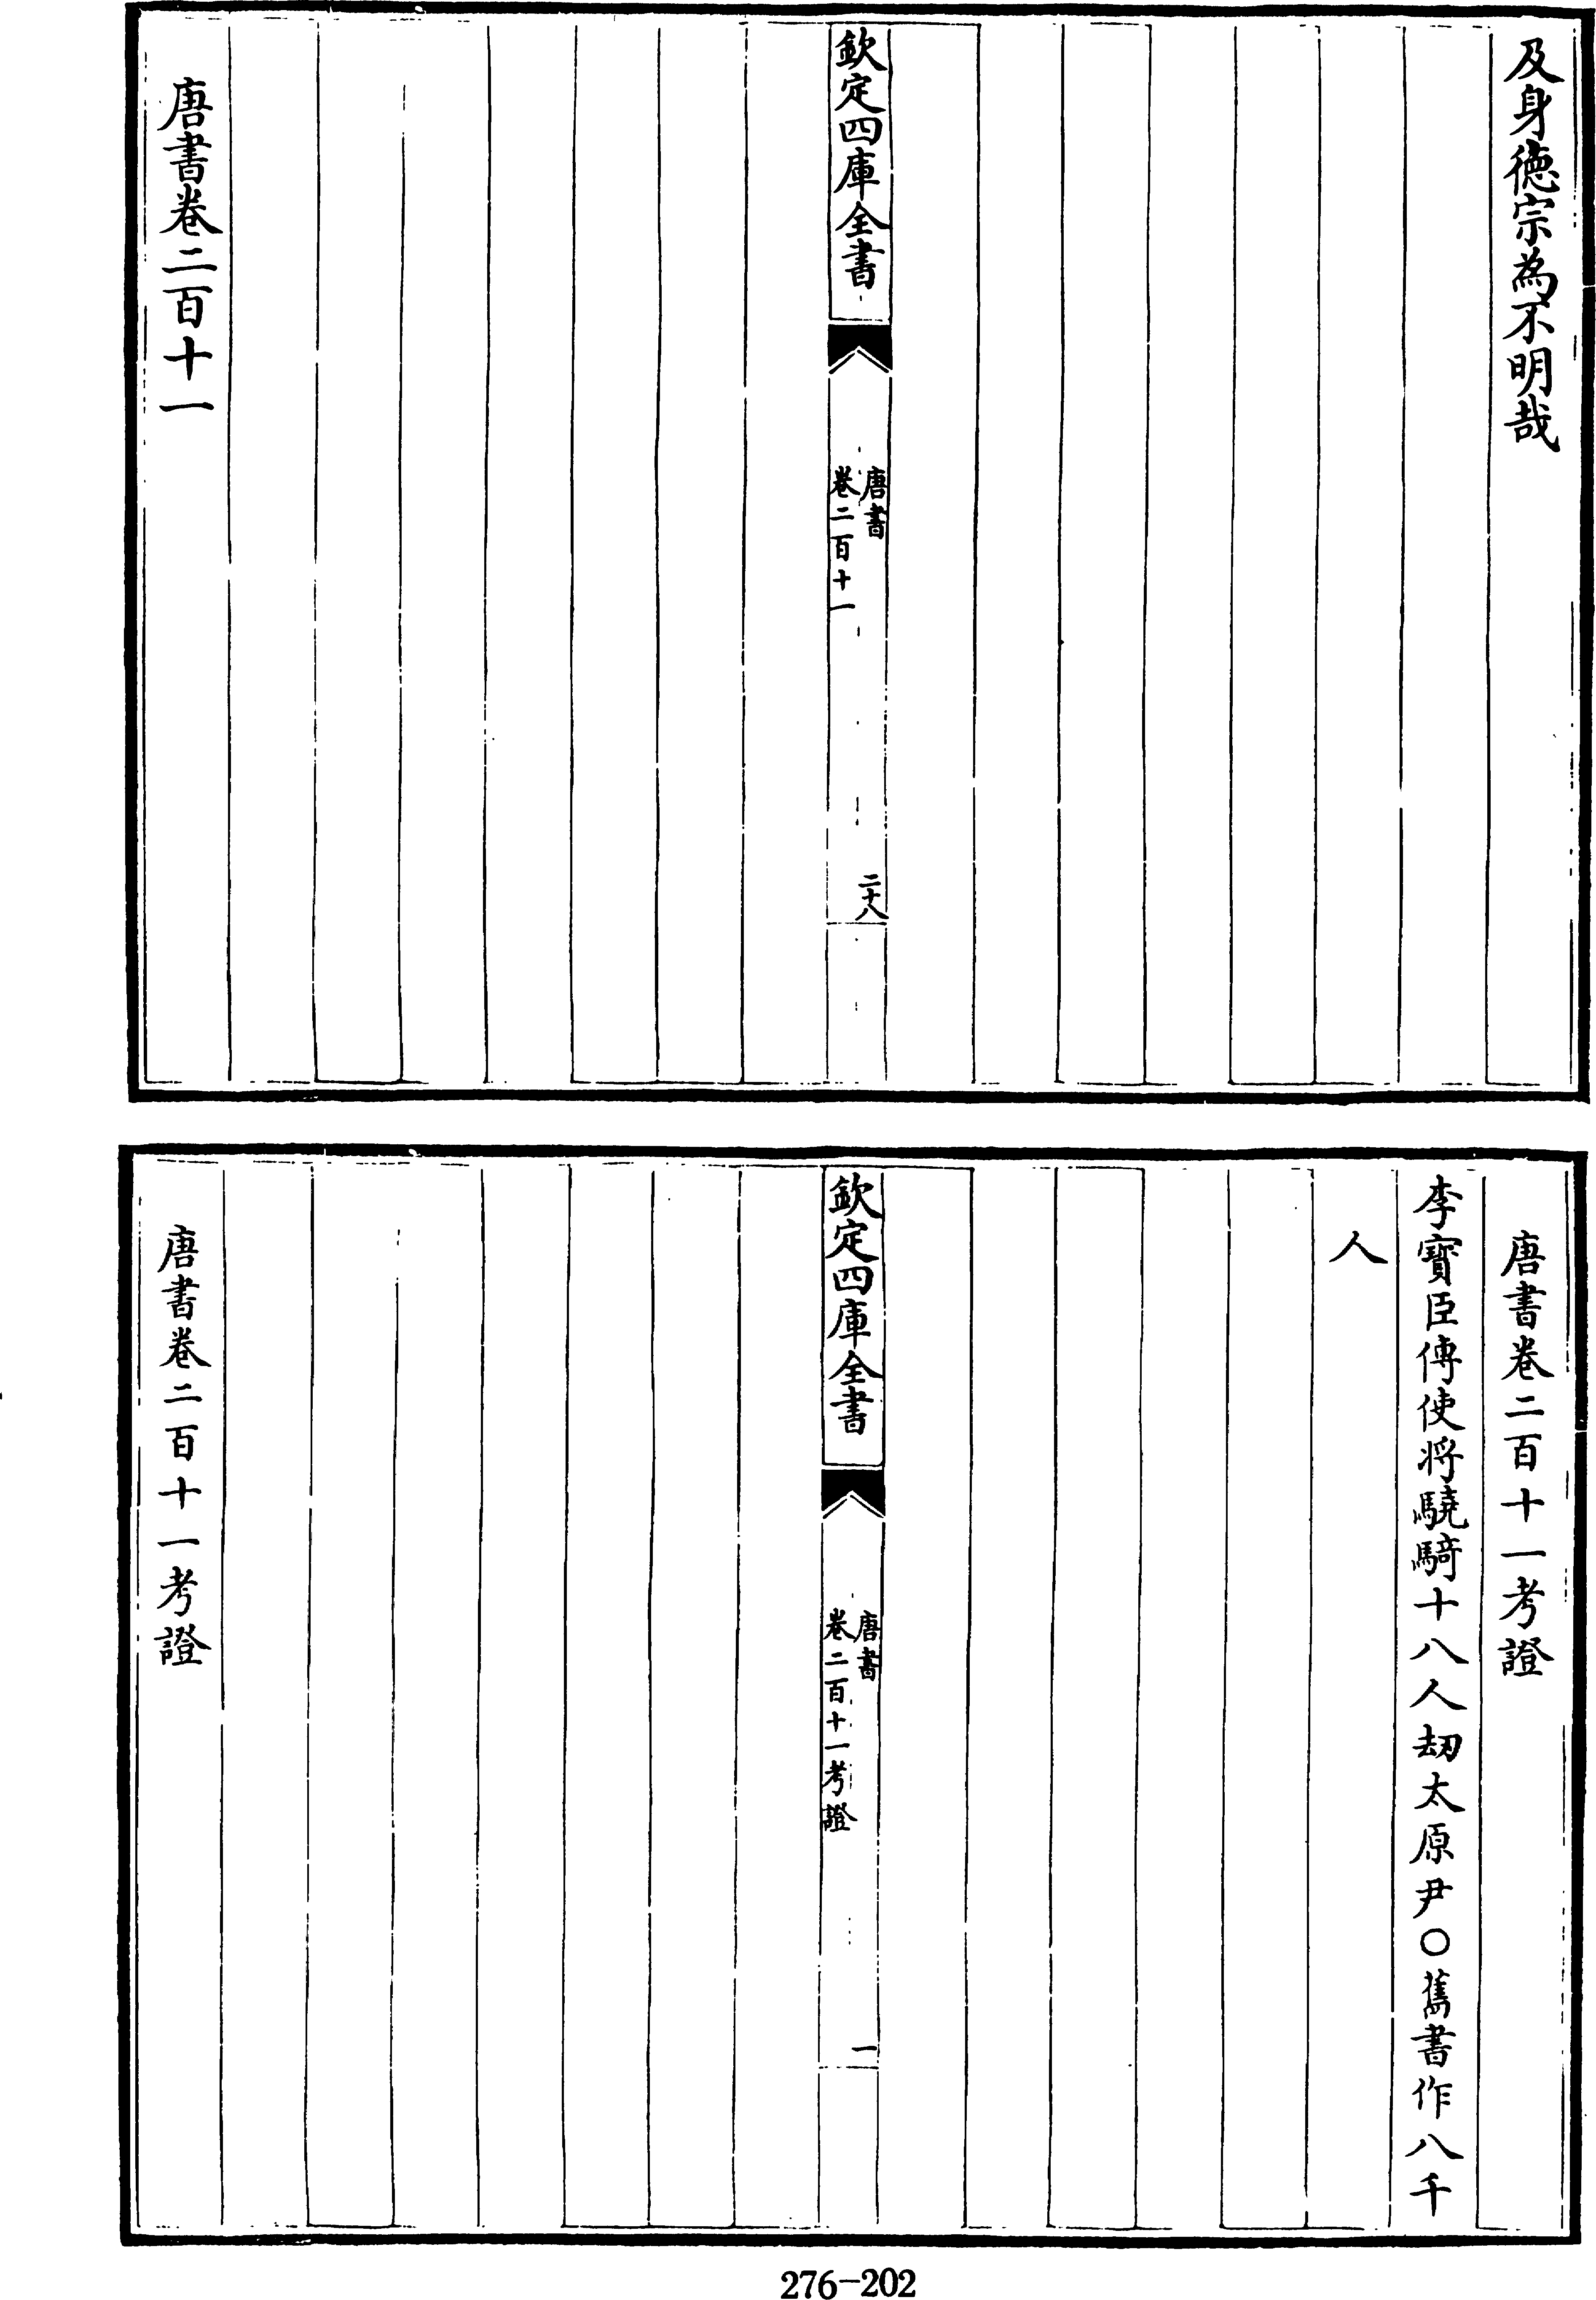 及身德宗為不明哉
欽定四庫全書
唐書
卷二百十一
二十八
唐書卷二百十一
唐書卷二百十一考證
李寶臣傳使將驍騎十八人劫太原尹○舊書作八千
人
欽定四庫全書
唐書
卷二百十一考證
一
唐書卷二百十一考證
276-202